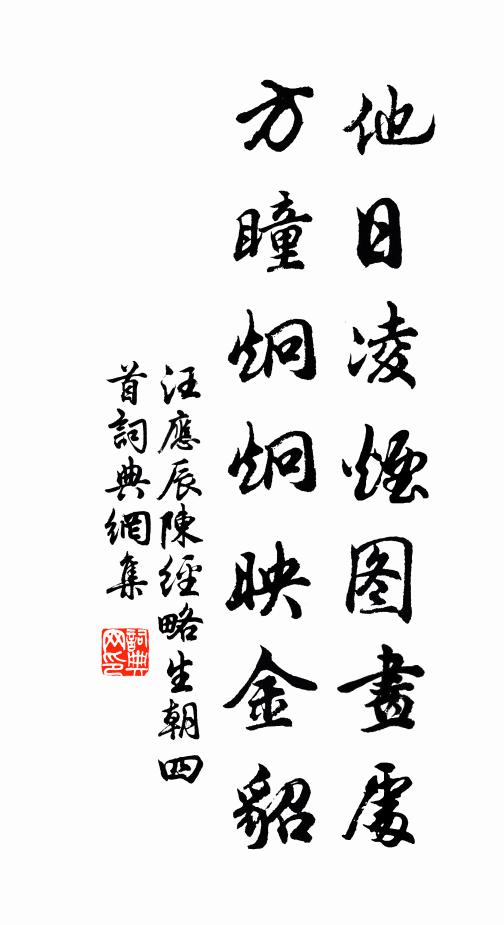 他日凌煙图畫處
方瞳炯炯映金貂
汪應辰陳經略生朝四
首詞典網集
詞典网印